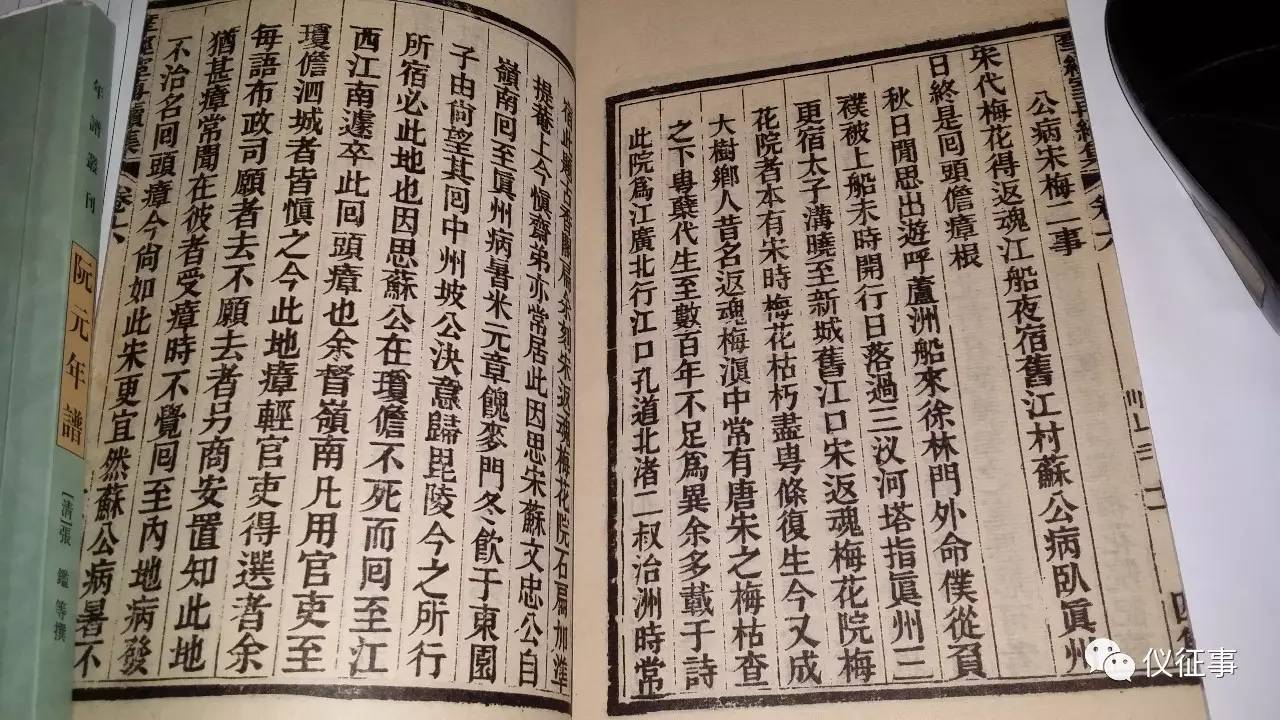 公病宋梅二事
宋代梅花得返魂江船夜宿舊江村蘇公病臥眞州
日終是回頭儋瘴根
秋日閒思出遊呼蘆洲船來徐林門外命僕從負
襆被上船未時開行日落過三汊河塔指眞州三
更宿太子溝曉至新城舊江口宋返魂梅花院梅
花院者本有宋時梅花枯朽盡甹條復生今又成
大樹鄉人昔名返魂梅滇中常有唐宋之梅枯查
之下甹櫱代生至數百年不足爲異余多載于詩
此院爲江廣北行江口孔道北渚二叔治洲時常
宿此
余刻宋返魂梅花院石扁加準
提菴上今愼齋弟亦常居此因思宋蘇文忠公自
嶺南回至眞州病暑米元章餽麥門冬飲于東園
子由尙望其回中州坡公決意歸毘陵今之所行
所宿必此地也因思蘇公在瓊儋不死而回至江
西江南遽卒此回頭瘴也余督嶺南凡用官吏至
瓊儋泗城者皆愼之今此地瘴輕官吏得選者余
每語布政司願者去不願去者另商安置知此地
猶甚瘴常聞在彼者受瘴時不覺回至內地病發
不治名回頭瘴今尙如此宋更宜然蘇公病暑不
卷六
年譜叢刊
阮元年譜
[清]張鑑等撰
仪征事